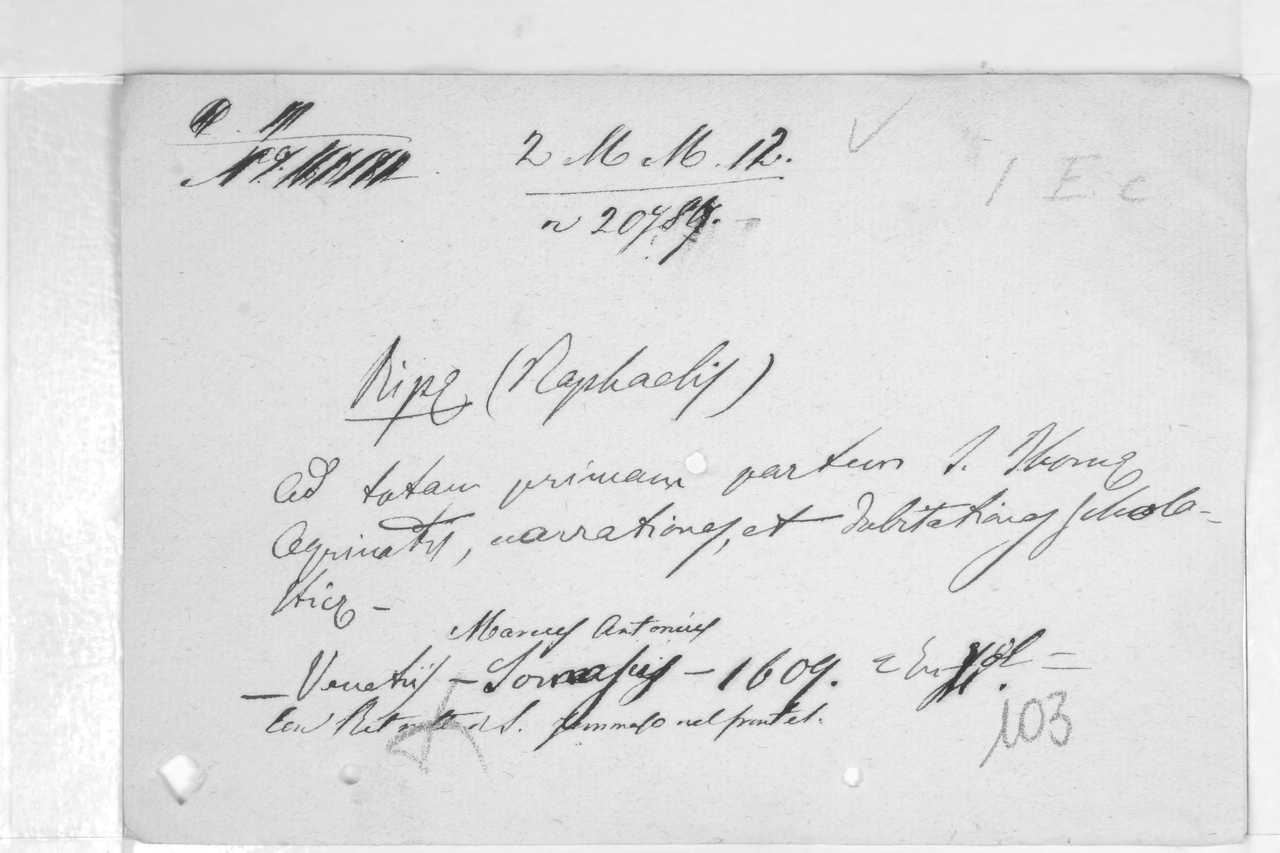 2 M M. 12.
1 E c
n 20789.
Ripę (Raphaelis)
Ad totam primam partem S. Thomę
Aquinatis, narrationes, et dubitationes schola-
sticę -
Marcus Antonius
- Venetiis - Somaschus - 1609. in
Con Ritratto di S. Tommaso nel frontes.
103